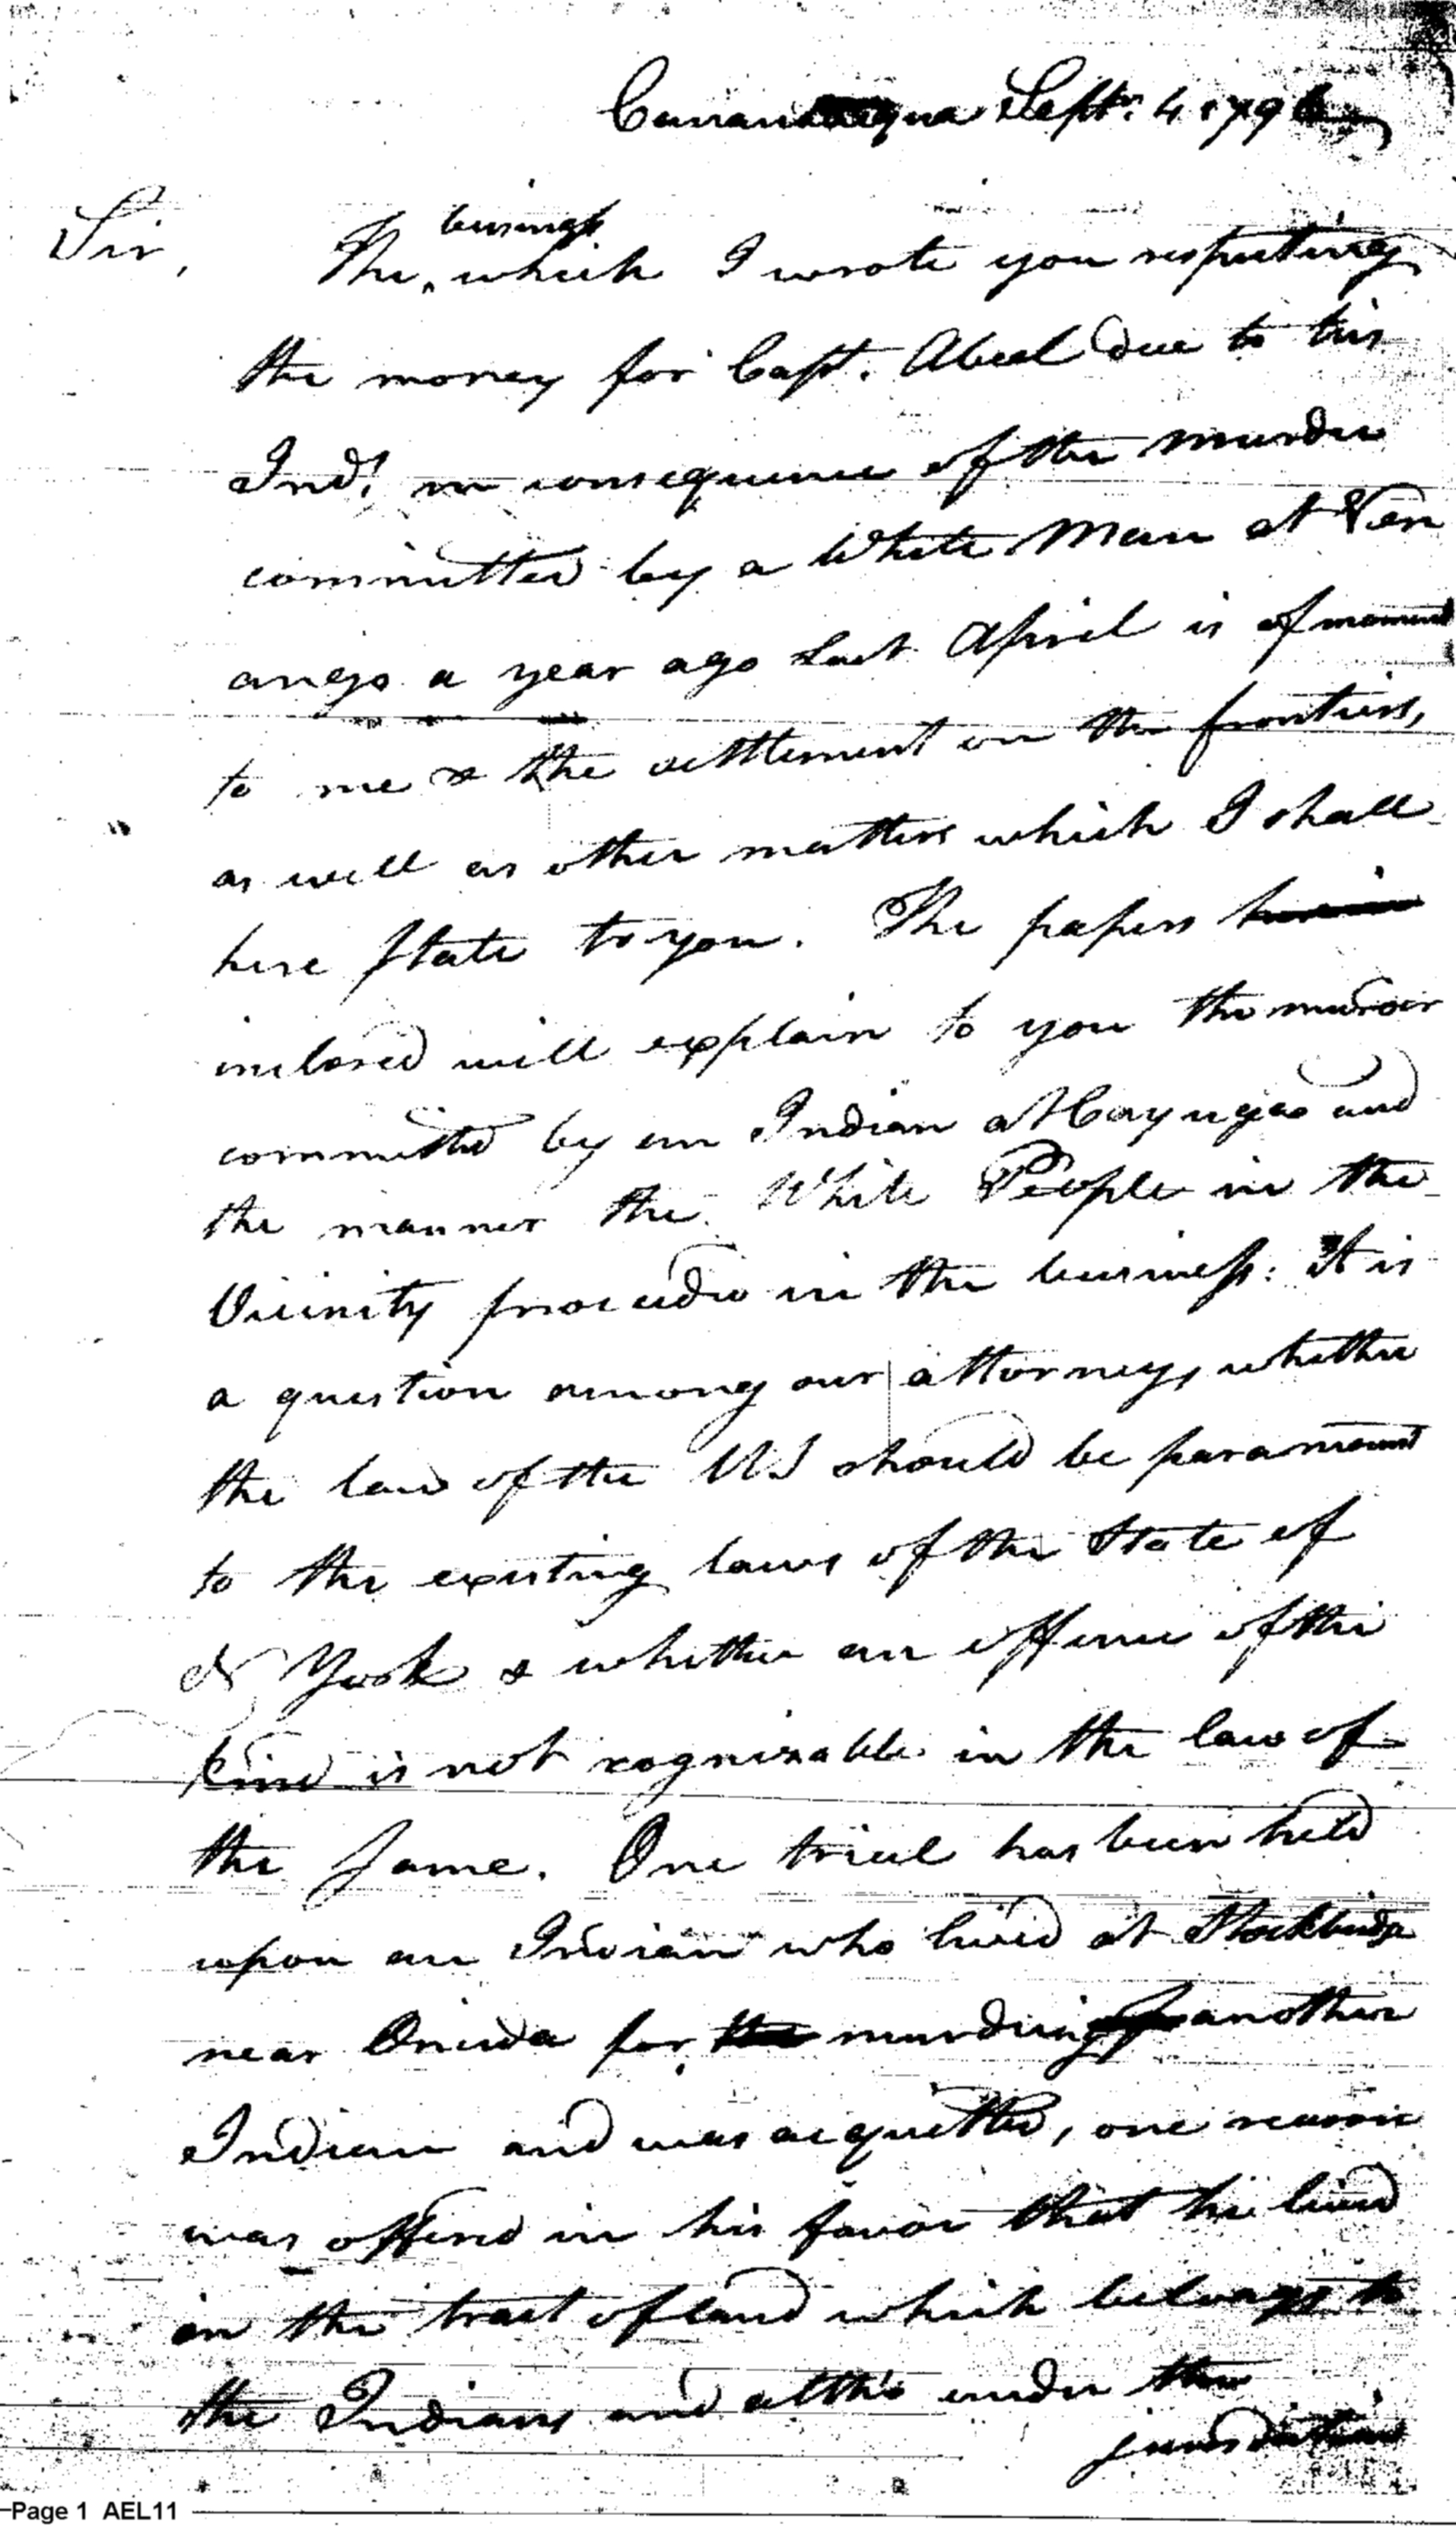 Canandaigua Sept.r 4 1796
Sir,
business
The ‸ which I wrote you respecting
the money for Capt. Abeel due to his
Ind.s in consequence of the murder
committed by a White Man at Ven
ango a year ago last April is of moment
to me & the settlement on the frontiers,
as well as other matters which I shall
here state to you. The papers
inclosed will explain to you the murder
committed by an Indian at Cayuga and
the manner the White People in the
Vicinity proceeded in the business: It is
a question among our attorneys, whether
the law of the US should be paramount
to the existing laws of the State of
N York & whether an offence of the
kind is not cognizable in the law of
the same. One trial has been held
upon an Indian who lived at Stockbridge
near Oneida for murdering another
Indian and was acquitted, one reason
was offered in his favor that he lived
on the tract of land which belongs to
the Indians and altho under the
jurisdiction
Page 1 AEL11